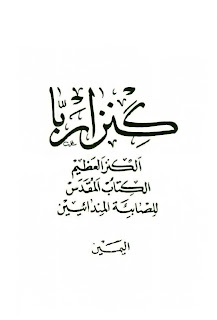 كنزا ربّا
الكنز العظيم
الكتاب المقدّس
للصّابئة المندائيّين
اليمين